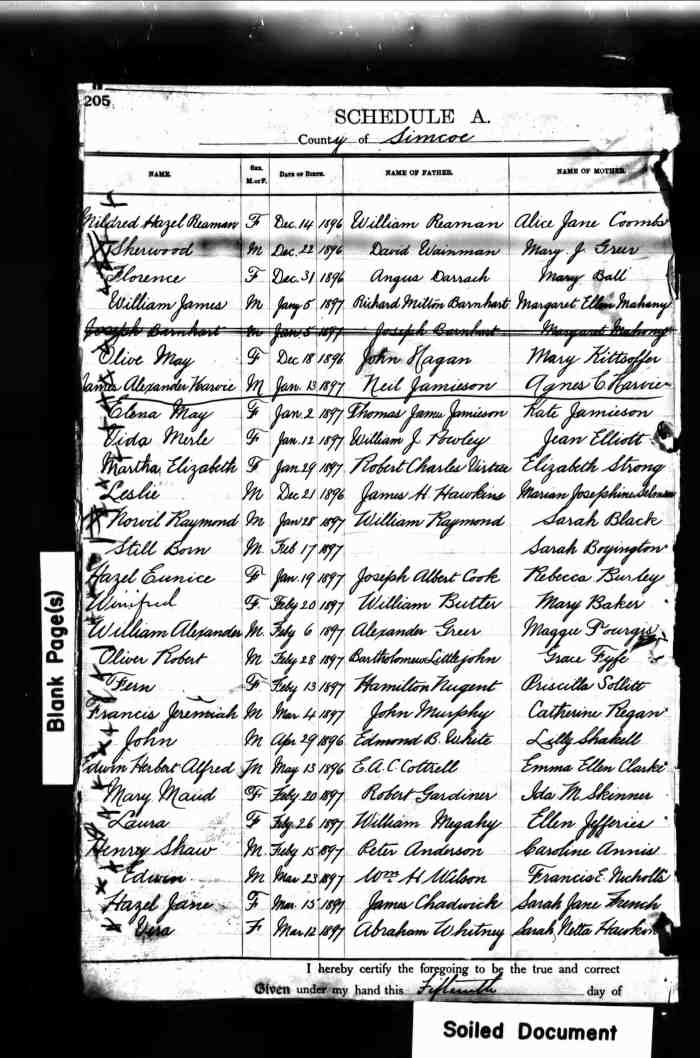 205
SCHEDULE A.
County of Simcoe
NAME. Sex. M. or F. DATE OF BIRTH. NAME OF FATHER. NAME OF MOTHER.
Mildred Hazel Reaman F Dec. 14 1896 William Reaman Alice Jane Coombs
Sherwood M Dec. 22 1896 David Wainman Mary J. Greer
Florence F Dec. 31 1896 Angus Darrach Mary Ball
William James M Jany 5 1897 Richard Milton Barnhart Margaret Ellen Mahony
Joseph Barnhart M Jan. 5 1897 Joseph Barnhart Margaret Mahony
Olive May F Dec 18 1896 John Hagan Mary
James Alexander Harvie M Jan. 13 1897 Neil Jamieson Agnes C Harvie
Elena May F Jan. 2 1897 Thomas James Jamieson Kate Jamieson
Vida Merle F Jan. 12 1897 William J. Jean Elliott
Martha Elizabeth F Jan 29 1897 Robert Charles Virtue Elizabeth Strong
Leslie M Dec 21 1896 James H Hawkins Marian Josephine
Norvil Raymond M Jan 28 1897 William Raymond Sarah Black
Still Born M Feb 17 1897 Sarah Boyington
Hazel Eunice F Jan 19 1897 Joseph Albert Cook Rebecca Burley
Winifred F Feby 20 1897 William Butter Mary Baker
William Alexander M. Feby 6 1897 Alexander Greer Maggie
Oliver Robert M Feby 28 1897 Bartholomew Littlejohn Grace Fyfe
Fern F Feby 13 1897 Hamilton Nugent Priscilla Sollitt
Francis Jeremiah M Mar 4 1897 John Murphy Catherine Regan
John M Apr 29 1896 Edmond B. White Lilly Shakell
Edwin Herbert Alfred M May 13 1896 E. A. C Cottrell Emma Ellen Clarke
Mary Maud F Feby 20 1897 Robert Gardiner Ida M. Skinner
Laura F Feby 26 1897 William Megahy Ellen Jefferies
Henry Shaw M Feby 15 1897 Peter Anderson Caroline Annis
Edwin M Mar 23 1897 Wm H Wilson Francis E. Nicholls
Hazel Jane F Mar. 15 1897 James Chadwick Sarah Jane French
Vera F Mar. 12 1897 Abraham Whitney Sarah Netta
I hereby certify the foregoing to be the true and correct
Given under my hand this Fifteenth day of
Blank Page(s)
Soiled Document